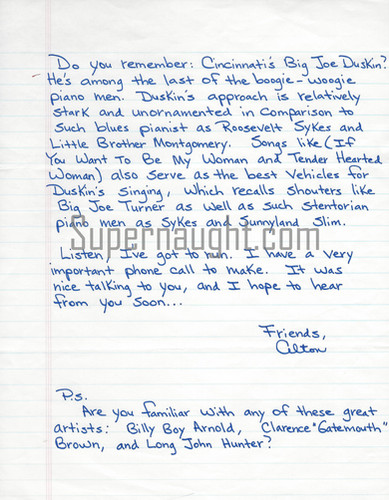 Do you remember: Cincinnati's Big Joe Duskin?
He's among the last of the boogie-woogie
piano men. Duskin's approach is relatively
stark and unornamented in comparison to
such blues pianist as Roosevelt Sykes and
Little Brother Montgomery. Songs like (If
You Want To Be My Woman and Tender Hearted
Woman) also serve as the best vehicles for
Duskin's singing, which recalls shouters like
Big Joe Turner as well as such stentorian
piano men as Sykes and Sunnyland Slim.
Supernaught.com
Listen, I've got to run. I have a very
important phone call to make. It was
nice talking to you, and I hope to hear
from you soon...
Friends,
Alton
P.s.
Are you familiar with any of these great
artists: Billy Boy Arnold, Clarence "Gatemouth"
Brown, and Long John Hunter?